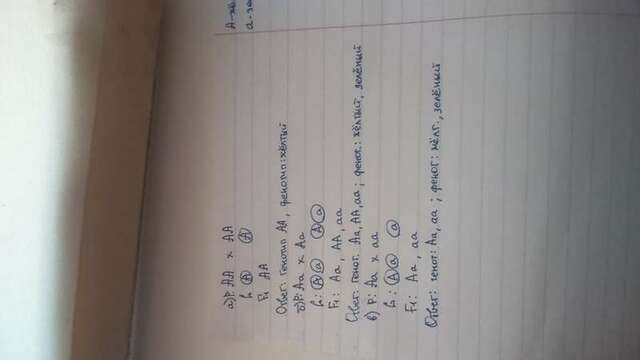 A-жё
a-зе
а) P: AA × AA
G: A A
F₁ AA
Ответ: генотип AA, фенотип: жёлтый
б) P: Aa × Aa
G: A a A a
F₁: Aa, AA, aa
Ответ: генот. Aa, AA, aa; фенот.: жёлтый, зелёный
в) P: Aa × aa
G: A a a
F₁: Aa, aa
Ответ: генот: Aa, aa; фенот: жёлт., зелёный